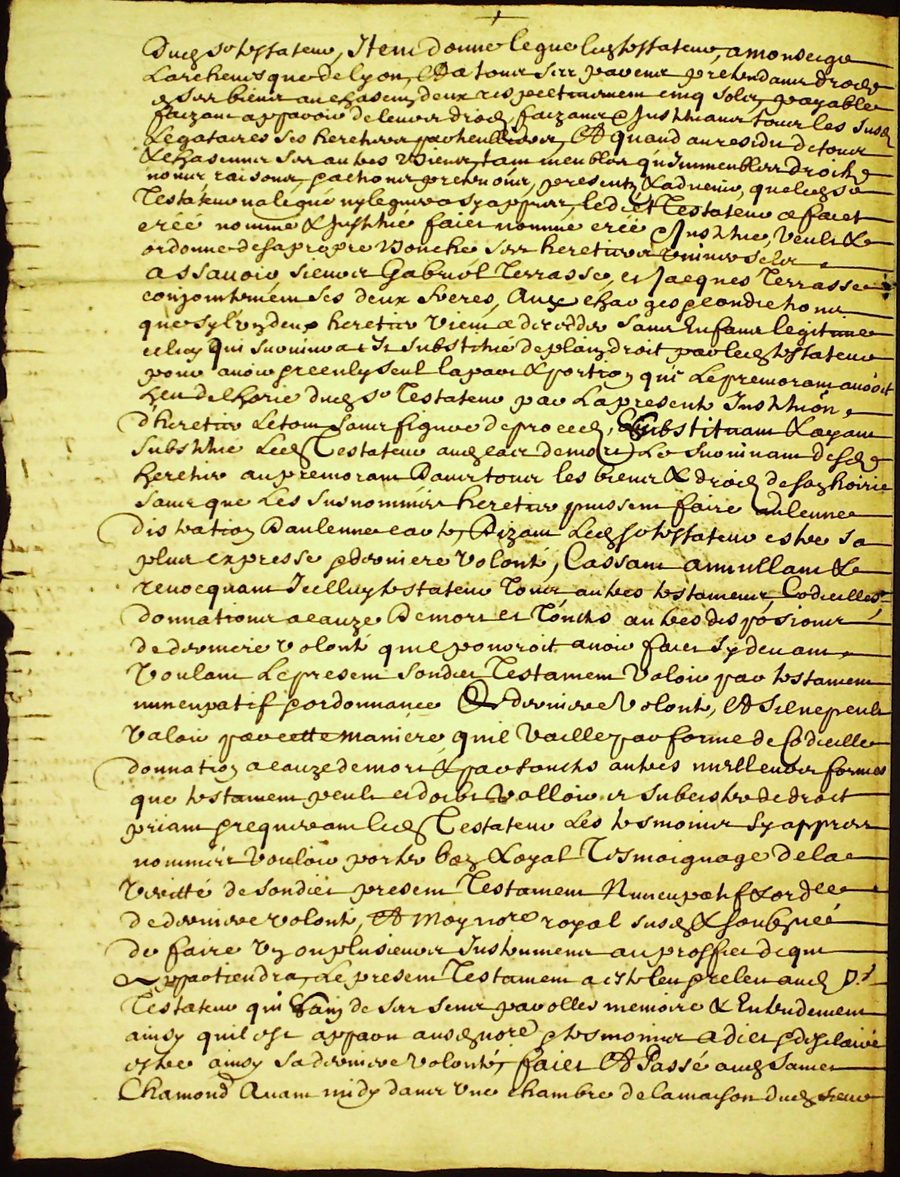 Dud Sr testateur, Item donne legue led testateur, a monseigr
Larchevesque de lyon, Et a tour ser pavenr pretendanr droictz
Sur bienr a chascung deux respectivement cinq solz, payable
faizant apparoir de leurs droicts, faizanr & Instituanr tour les susd
Legataires ses heretierr particulliers, Et quand au residu de tour
& chasunnr ser autres biens, tam meubler qu'immeubler droictz
nomr raisonr, pationr pretenour, presentz & advenir, quelcz se
Testateur na legué ny leguera sy apprer, led Sr Testateur a faict
créé nommé & Institué faict nomme créé & Institue, veult &
ordonne de sa propre bouche ser heretierr univerceler
assavoir sieurr Gabriel Terrasse, et Jacques Terrasse
conjointement ses deux freres, Aux charges & conditionr
que sy lun deux heretier vient a decedder sanr Enfanr legitime
celluy qui survivra Est substitué de plain droit par led testateur
pour avoir & recuply seul la part & portion qui le premoram avoit
Lieu de lhoirie dud Sr Testateur par la presente Institution
dheretier Letout sanr figure de proced, Substituam & ayam
Substitue Led Testateur aud cas de mort Le survivam desd
heretier au premoram Danr tour les bienr & droitz de say hoirie
Sanr que Les susnommér heretier puissent faire aulcune
distration Daulcune carte, Dizam Led sr testateur estre sa
plus expresse & derniere volonté, Cassam annullam &
revocquam Icelluy testateur Tour autres testamentr, Codicilles
donnationr a cauze De mort et Toutes autres dispositionr
de derniere volonté quil pouvroit avoir faict Sy devam
Voulam Le present Sondict Testament Valoir par testament
nuncupatif & ordonnance De derniere volonté, Et Sil ne peult
Valoir par cette maniere, quil Vaille par forme de Codicille
donnation a cauze de mort & par toutes autres meilleurr formes
que testament peult et doibt Valloir et subcister de droit
priant & requeram led Testateur Les tesmoinr Sy apprer
nommér Vouloir porter bon & loyal Tesmoignage de la
Veritté de sondict present Testament Nuncupatif & ordce
de derniere volonté, Et Moy nore royal susd & soubzné
de faire Un ou plusieurr Instrument au proffict de qui
appartiendra, Le present Testament a esté leu & releu aud Sr
Testateur qui Sain de ser sens parolles memoire & Entendement
ainsy quil est apparu ausd nore & tesmoinr a dict & desclairé
estre ainsy sa derniere volonté, faict Et Passé aud Sainct
Chamond Avant midy danr Une chambre de la maison dud sieur